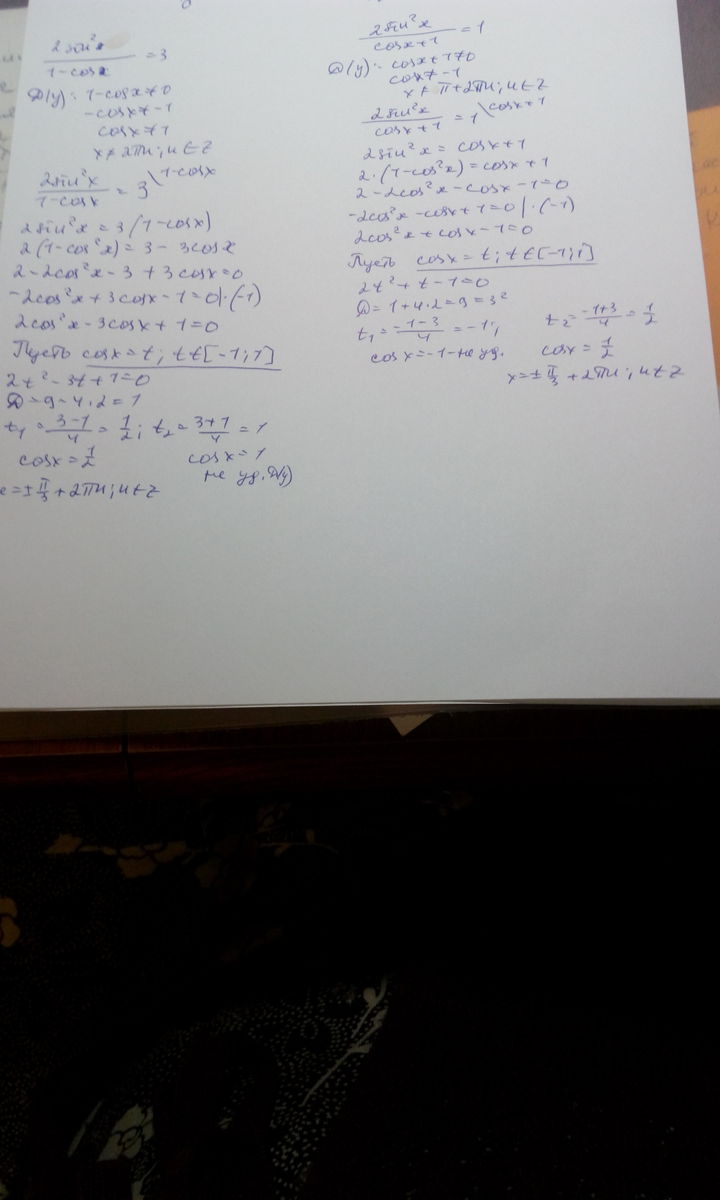 2sin²x/(1-cosx) = 3
D(y): 1-cosx≠0
-cosx≠-1
cosx≠1
x≠2πn; n∈Z
2sin²x/(1-cosx) = 3 \1-cosx
2sin²x = 3(1-cosx)
2(1-cos²x) = 3-3cosx
2-2cos²x-3+3cosx=0
-2cos²x+3cosx-1=0|·(-1)
2cos²x-3cosx+1=0
Пусть cosx=t; t∈[-1;1]
2t²-3t+1=0
D=9-4·2=1
t₁=(3-1)/4=1/2; t₂=(3+1)/4=1
cosx=1/2 cosx=1
не уд. D(y)
x=±π/3+2πn; n∈Z
2sin²x/(cosx+1) = 1
D(y): cosx+1≠0
cosx≠-1
x≠π+2πn; n∈Z
2sin²x/(cosx+1) = 1 \cosx+1
2sin²x = cosx+1
2·(1-cos²x)=cosx+1
2-2cos²x-cosx-1=0
-2cos²x-cosx+1=0|·(-1)
2cos²x+cosx-1=0
Пусть cosx=t; t∈[-1;1]
2t²+t-1=0
D=1+4·2=9=3²
t₁=(-1-3)/4=-1; t₂=(-1+3)/4=1/2
cosx=-1-не уд. cosx=1/2
x=±π/3+2πn; n∈Z